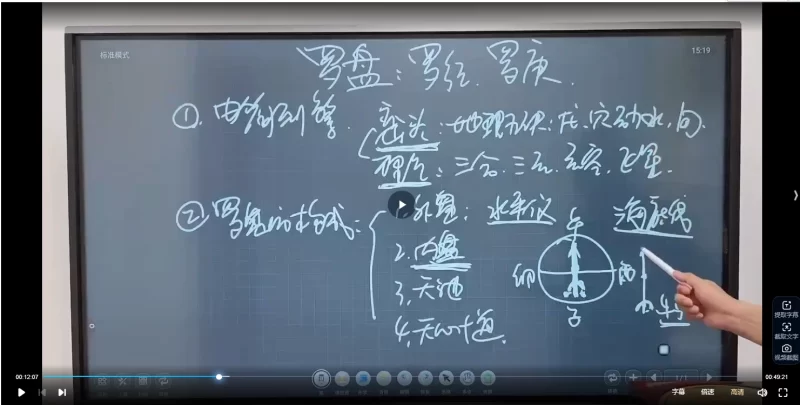 标准模式
15:19
罗盘：罗经、罗庚.
① 由简到繁. 峦头：地理形体：龙.穴.砂.水.向.
理气：三合.三元.玄空.飞星.
② 罗盘的构成：
1.外盘：水平仪
2.内盘
3.天池
4.天心十道
海底线
午
卯
酉
子
提取字幕
截取文字
视频截图
00:12:07
00:49:21
1/1
字幕
倍速
高清